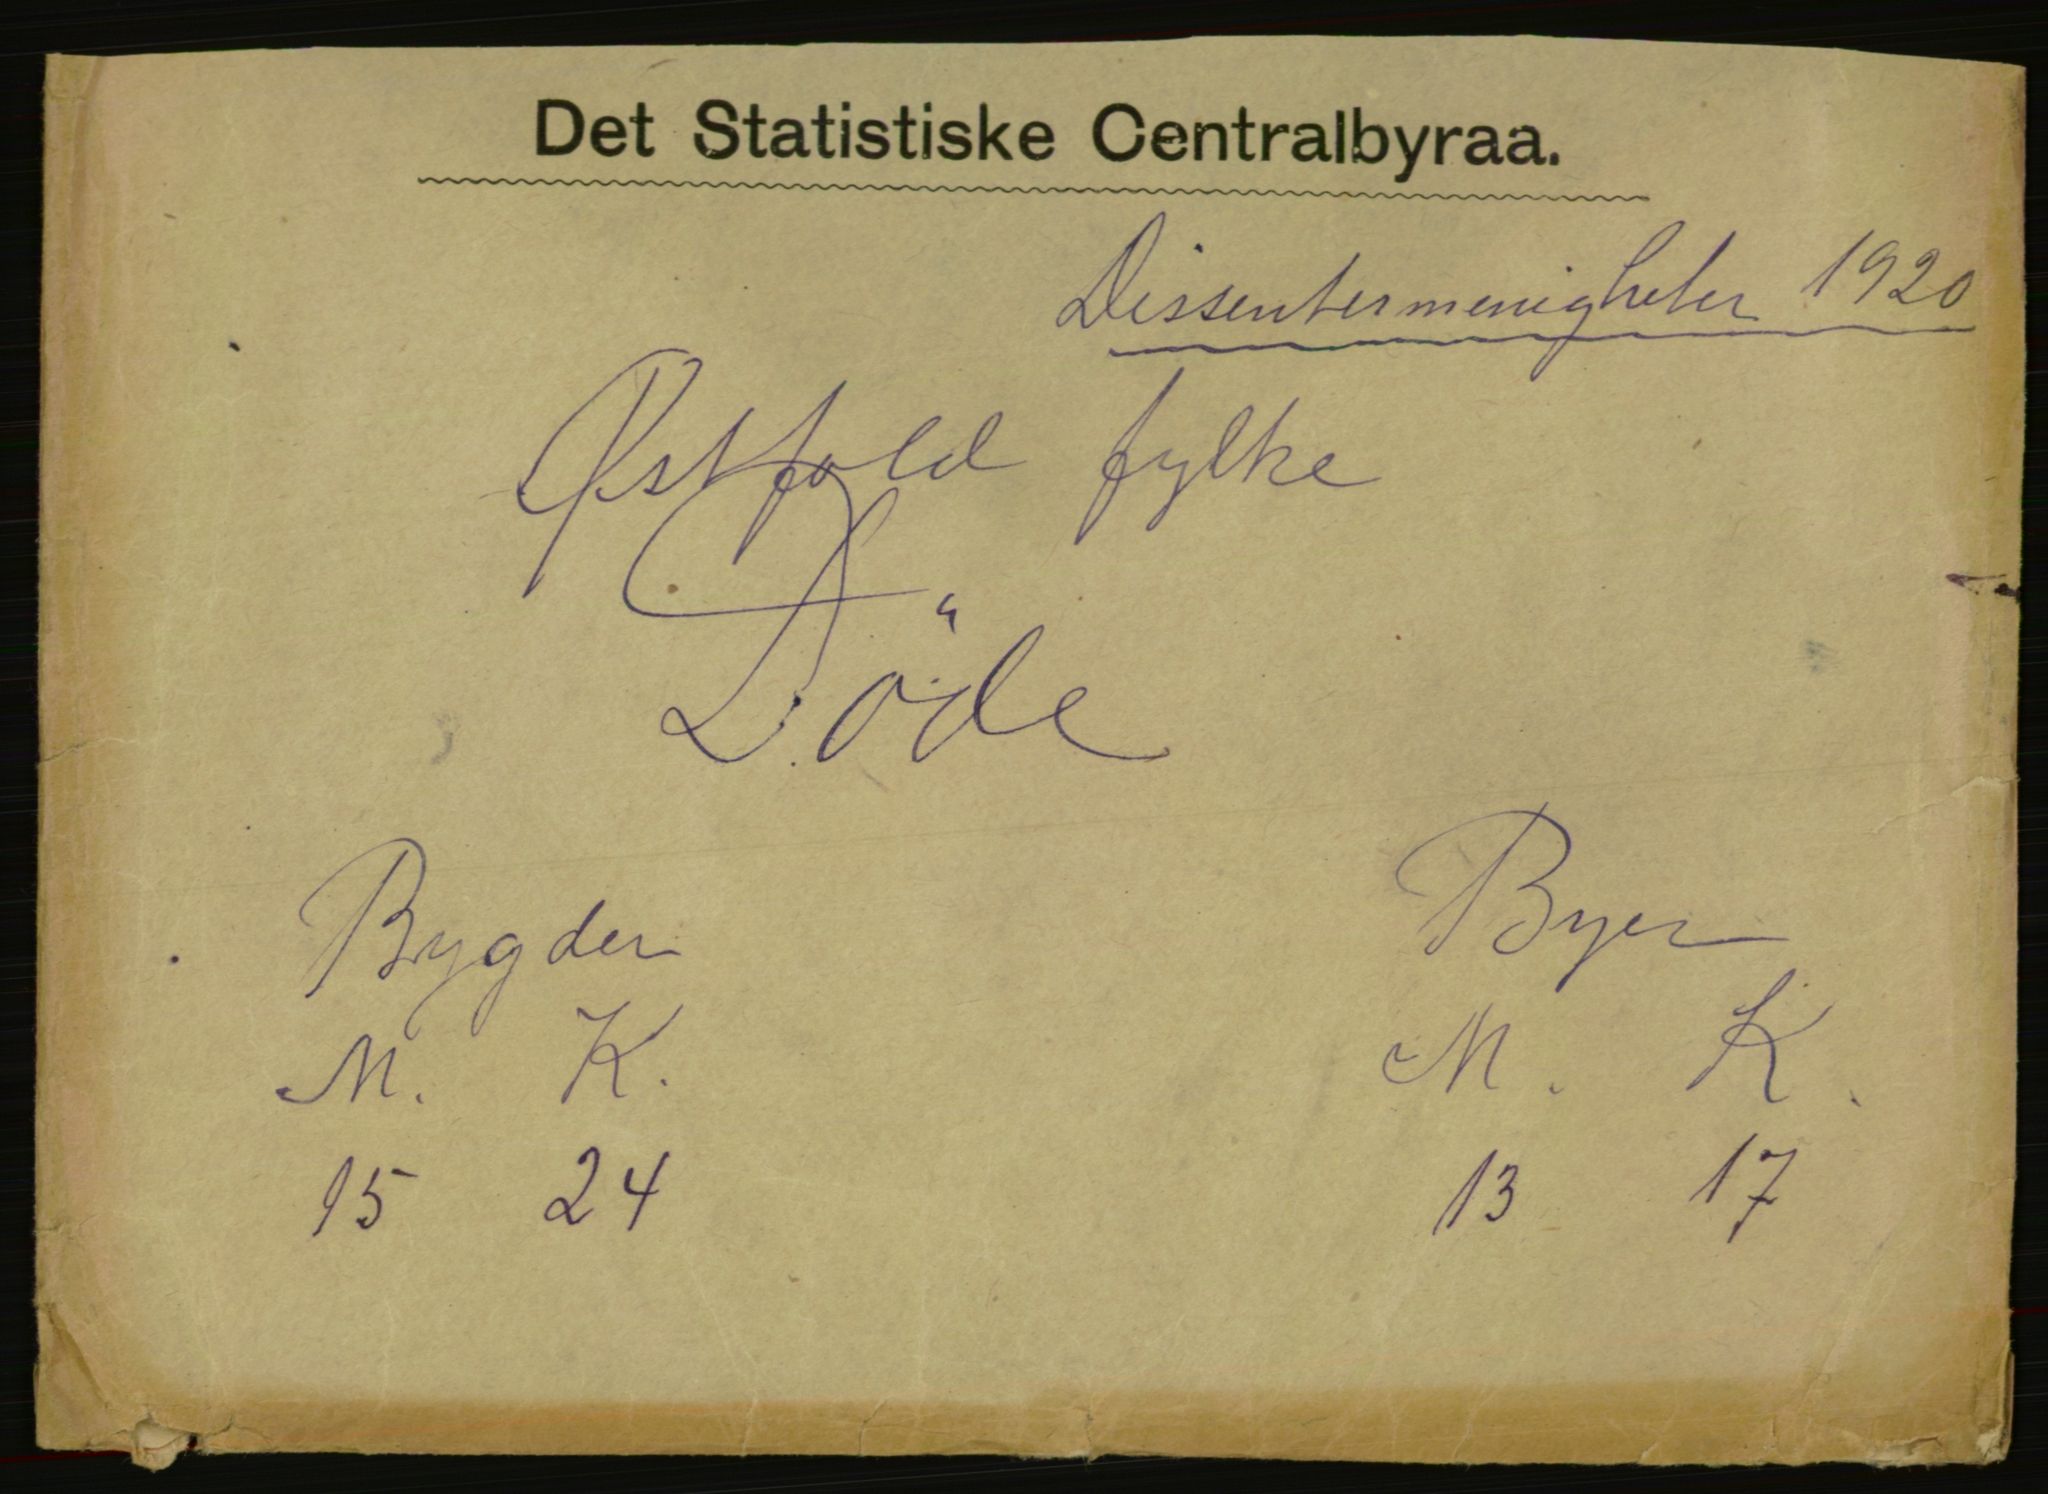 Det Statistiske Centralbyraa.
Dissentermenigheter 1920
Østfold fylke
Döde
Bygder Byer
M. K. M. K.
15 24 13 17